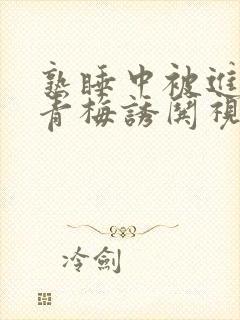 熟睡中被進
青梅誘関視
冷劍